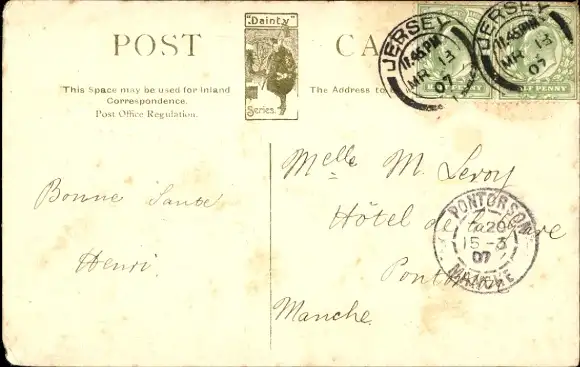 POST CA
"Dainty"
Series.
This Space may be used for Inland
Correspondence.
Post Office Regulation.
The Address to
JERSEY
11.45PM
MR 13
07
JERSEY
11.45PM
MR 13
07
HALF PENNY
HALF PENNY
Bonne Santé
Henri.
Melle M. Leroy
Hôtel de la Gare
Pontorson
Manche.
PONTORSON
20
15-3
07
MANCHE